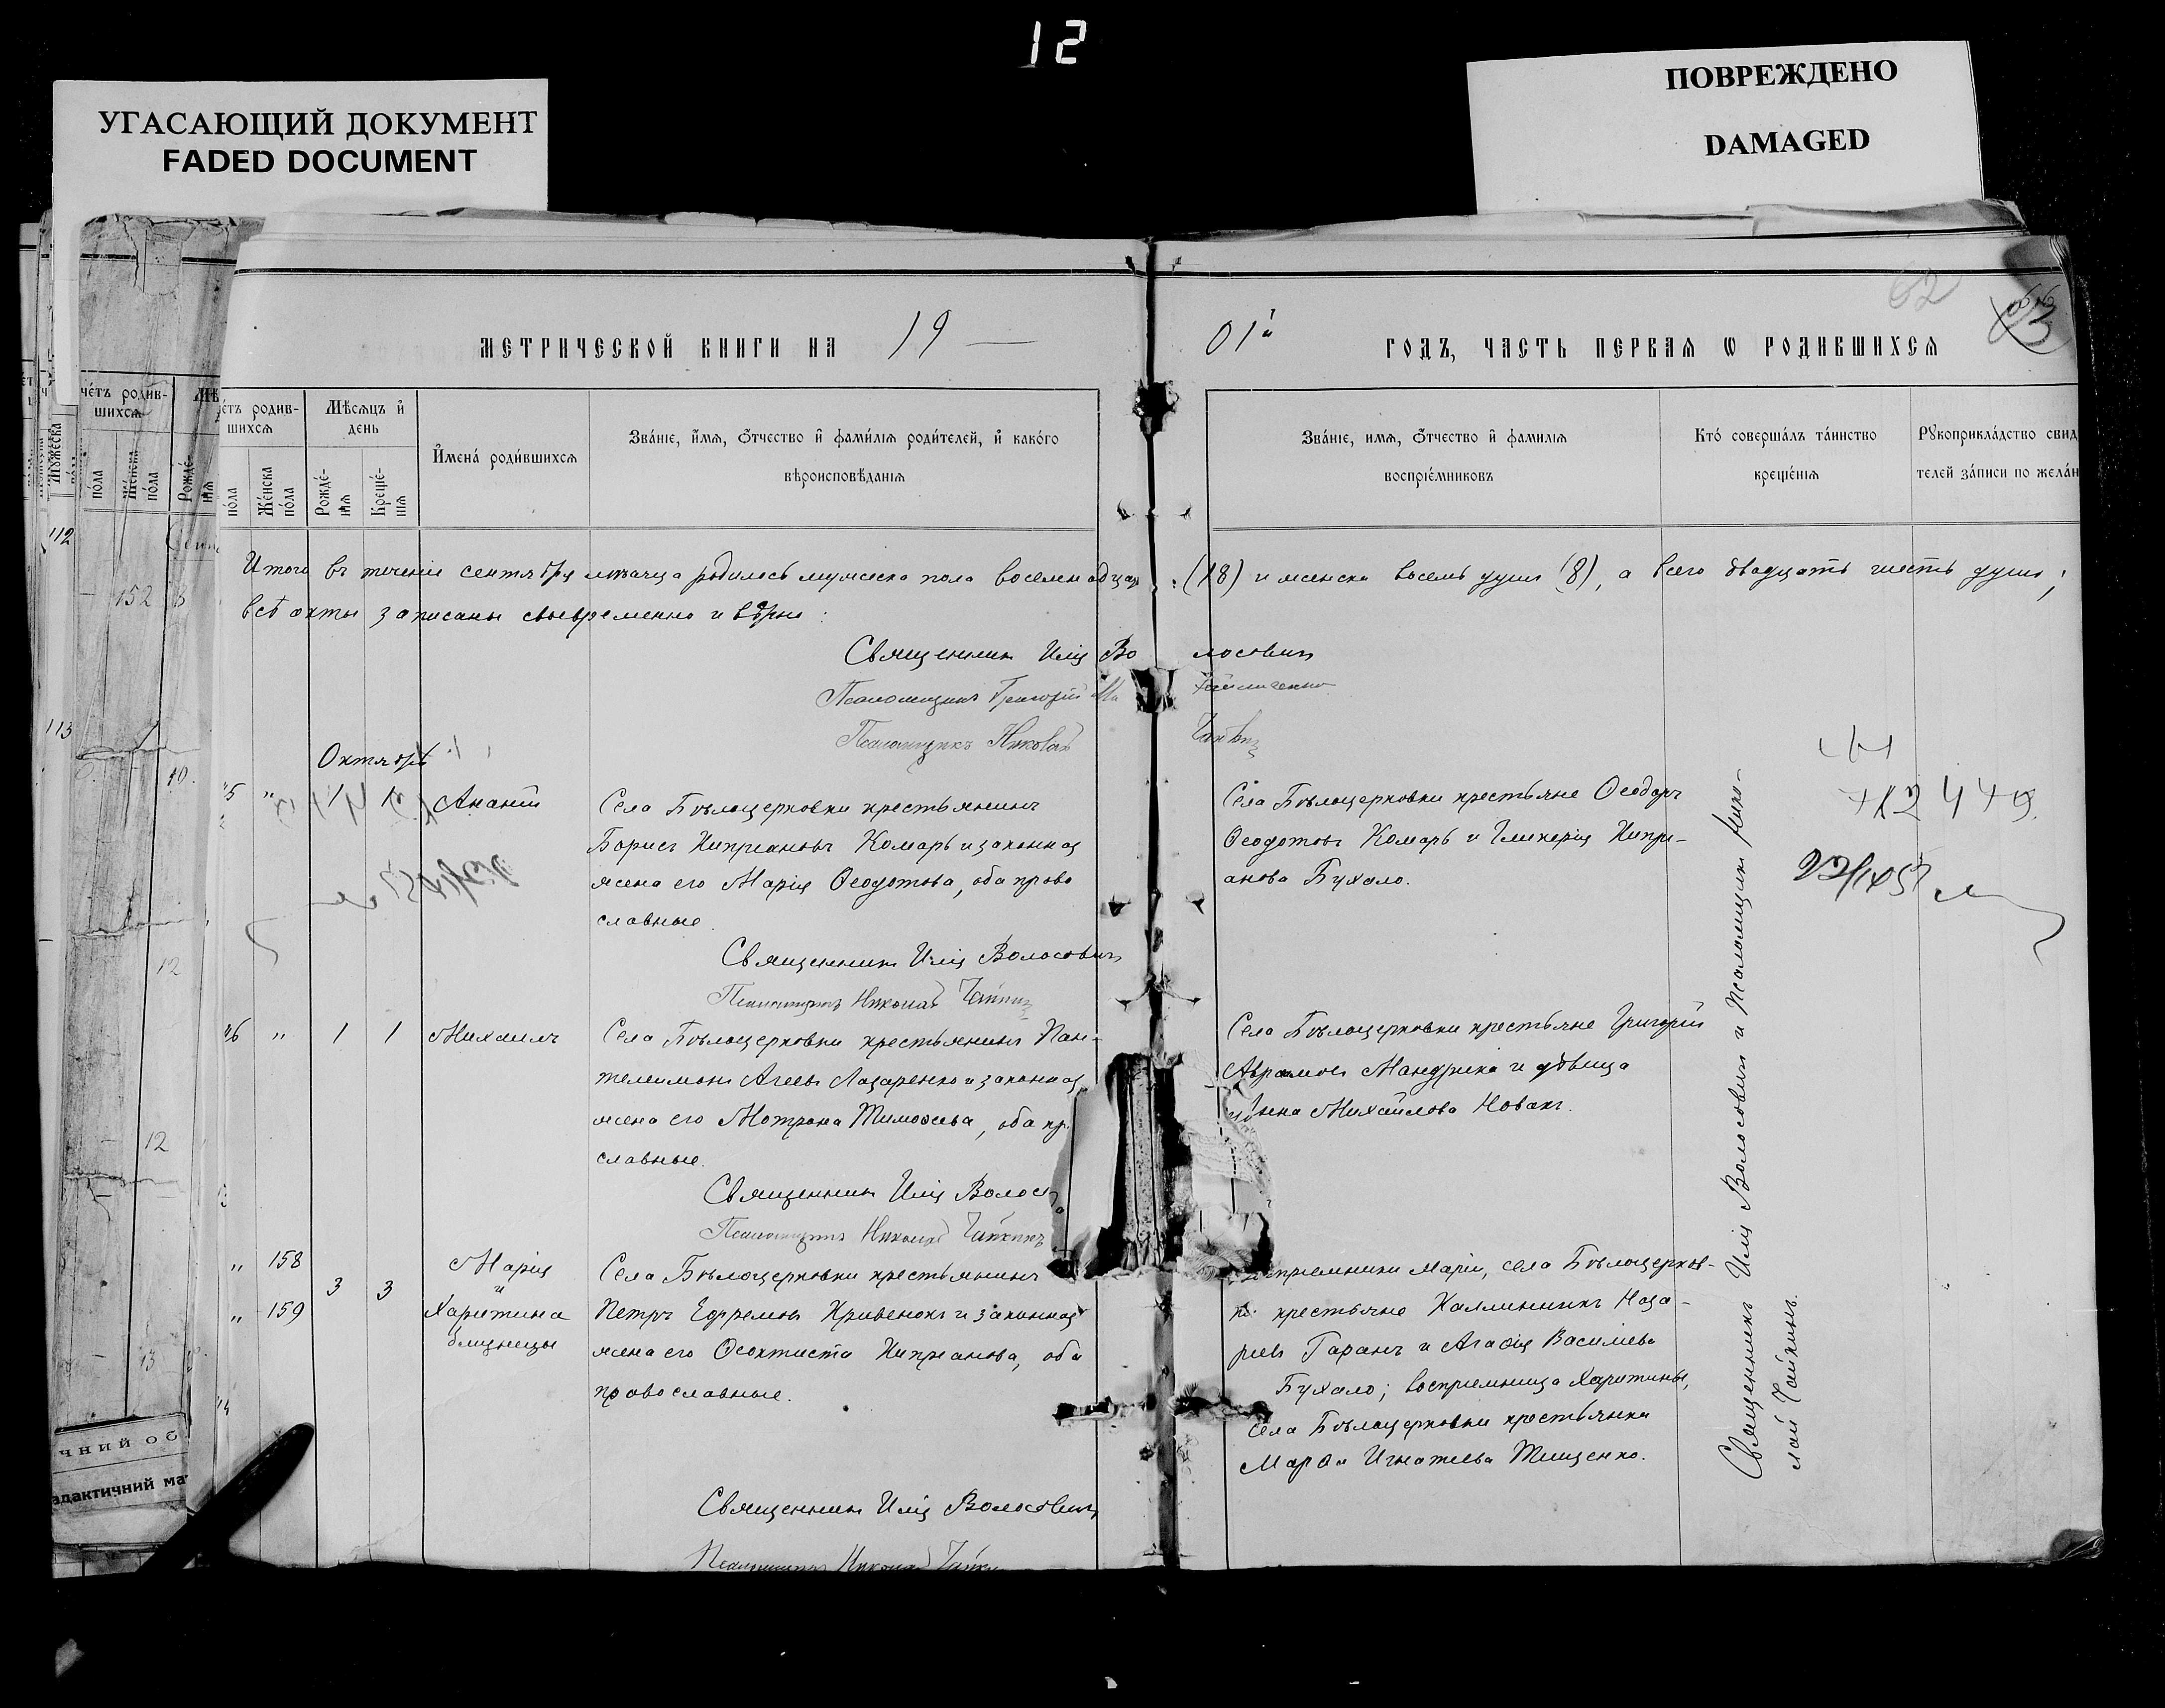 12
УГАСАЮЩИЙ ДОКУМЕНТ
FADED DOCUMENT
ПОВРЕЖДЕНО
DAMAGED
62
МЕТРИЧЕСКОЙ КНИГИ НА 19
01й ГОДЪ, ЧАСТЬ ПЕРВАЯ Ѡ РОДИВШИХСЯ
Мѣсяцъ и день
Имена родившихся
Званіе, имя, отчество и фамилія родителей, и какого
вѣроисповѣданія
Женска пола
Рожденія
Крещенія
Званіе, имя, отчество и фамилія
воспріемниковъ
Кто совершалъ таинство
крещенія
Рукоприкладство свид
телей записи по желан
112
152
113
10
12
12
13
Итого въ теченіе сентября мѣсяца родилось мужеска пола восемнадцать (18) и женска восемь душъ (8), а всего двадцать шесть душъ;
всѣ акты записаны своевременно и вѣрно:
Священникъ Илія Волосовичъ
Псаломщикъ Григорій
Псаломщикъ Николай Чайкинъ
Октябрь
5 " 1 Ананій
Села Бѣлоцерковки крестьянинъ
Борисъ Кипріановъ Комарь и законная
жена его Марія Ѳеодотова, оба право
славные.
Священникъ Илія Волосовичъ
Псаломщикъ Николай Чайкинъ
Села Бѣлоцерковки крестьяне Ѳеодоръ
Ѳеодотовъ Комарь и Гликерія Кипрі-
анова Бухало.
6 " 1 1 Михаилъ
Села Бѣлоцерковки крестьянинъ Пан-
телимонъ Агеевъ Лазаренко и законная
жена его Мотрона Тимоѳеева, оба пр
славные.
Священникъ Илія Волос
Псаломщикъ Николай Чайкинъ
Села Бѣлоцерковки крестьяне Григорій
Аврамовъ Мандрика и дѣвица
Михайлова Новакъ.
" 158
" 159
3 3
Марія
и
Харитина
близнецы
Села Бѣлоцерковки крестьянинъ
Петръ Ефремовъ Кривенокъ и законная
жена его Ѳеоктиста Кипріанова, оба
православные.
Священникъ Илія Волосовичъ
Псаломщикъ Николай Чайки
пріемники Маріи, села Бѣлоцерков-
ки крестьяне Каллинникъ Наза-
ріевъ Таранъ и Агафія Василіева
Бухало; воспріемница Харитины,
села Бѣлоцерковки крестьянка
Марѳа Игнатіева Тищенко.
Священникъ Илія Волосовичъ и Псаломщикъ Нико-
лай Чайкинъ.
чний об
адактичний ма